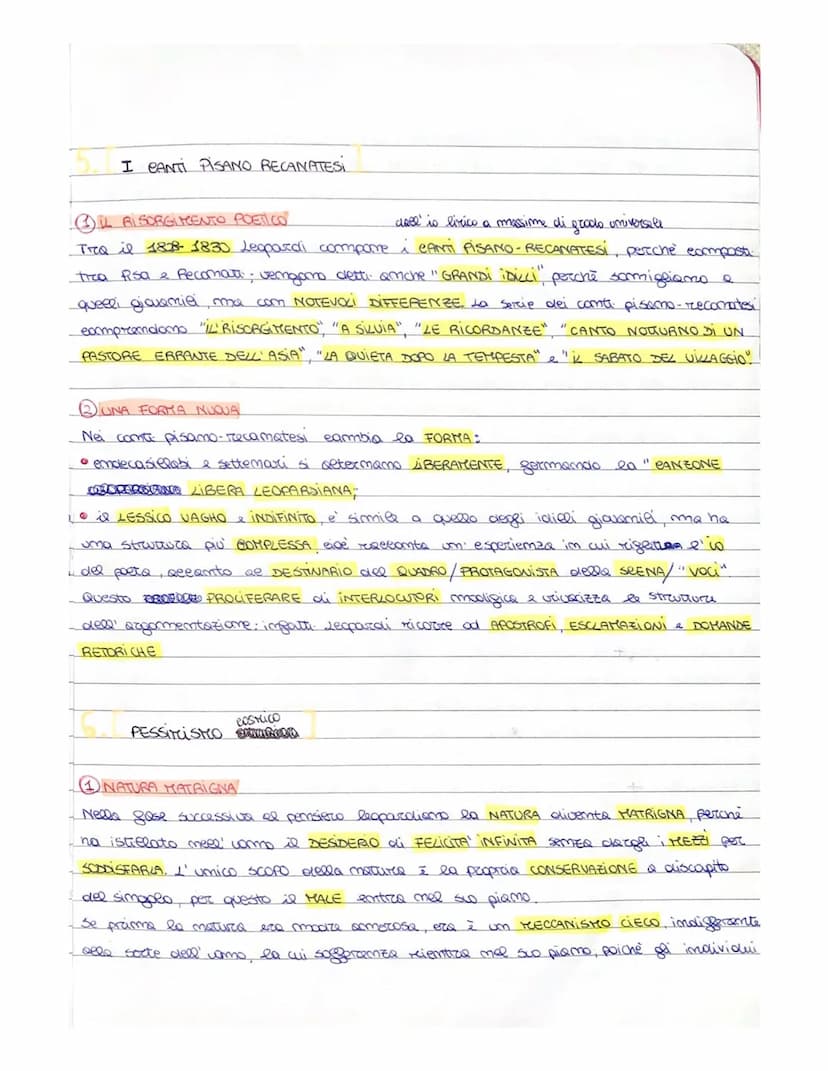 5. [ I CANTI PISANO RECANATESI ]
① IL RISORGIMENTO POETICO dall'io lirico a massime di grado universale
Tra il 1828-1830 Leopardi compone i CANTI PISANO-RECANATESI, perché composti
tra Pisa e Recanati; vengono detti anche "GRANDI IDILLI", perché somigliano a
quelli giovanili, ma con NOTEVOLI DIFFERENZE. La serie dei canti pisano-recanatesi
comprendono "IL RISORGIMENTO", "A SILVIA", "LE RICORDANZE", "CANTO NOTTURNO DI UN
PASTORE ERRANTE DELL'ASIA", "LA QUIETA DOPO LA TEMPESTA" e "IL SABATO DEL VILLAGGIO".
② UNA FORMA NUOVA
Nei canti pisano-recanatesi cambia la FORMA:
• endecasillabi e settenari si alternano LIBERAMENTE, formando la "CANZONE
LIBERA LEOPARDIANA;
• il LESSICO VAGHO e INDIFINITO, e' simile a quello degli idilli giovanili, ma ha
una struttura piu' COMPLESSA cioè racconta un'esperienza in cui l'io
del poeta, accanto al DESTINARIO del QUADRO/PROTAGONISTA della SCENA/"VOCI"
Questo PROLIFERARE di INTERLOCUTORI modifica e vivacizza la struttura
dell'argomentazione: infatti Leopardi ricorre ad APOSTROFI, ESCLAMAZIONI e DOMANDE
RETORICHE
6. [ PESSIMISMO COSMICO ]
① NATURA MATRIGNA
Nella fase successiva al pensiero leopardiano la NATURA diventa MATRIGNA, perché
ha istillato nell'uomo il DESIDERIO di FELICITA' INFINITA senza dargli i MEZZI per
SODDISFARLA. L'unico scopo della natura è la propria CONSERVAZIONE a discapito
del singolo, per questo il MALE entra nel suo piano.
Se prima la natura era madre amorosa, ora è un MECCANISMO CIECO, indifferente
alla sorte dell'uomo, la cui sofferenza rientra nel suo piano, poiché gli individui